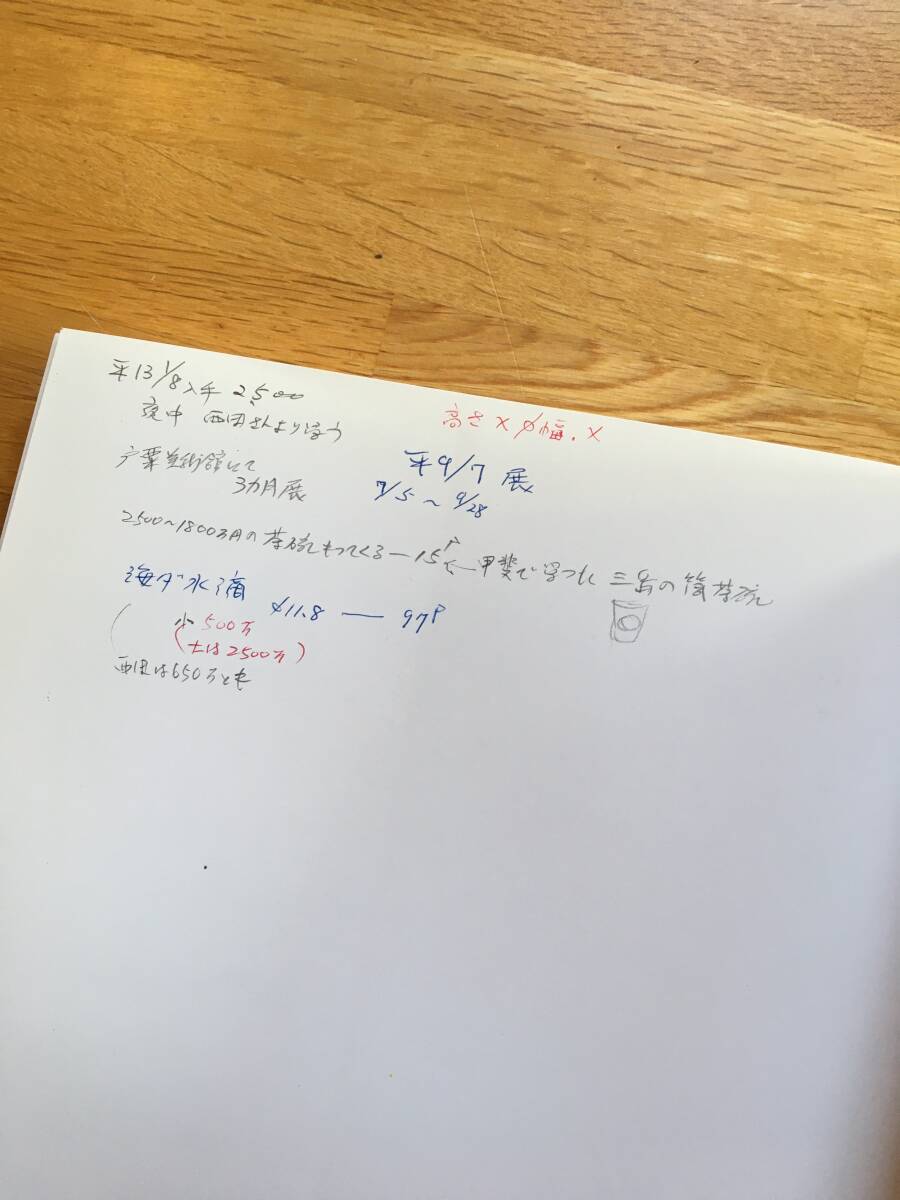 平13 1/8 入手 2,500
夜中 西田さんより
高さ×φ幅.×
美術館にて
3カ月展
平9/7 展
7/5〜9/28
2500〜1800万円の茶碗もってくる—15P ← 甲斐で 三島の筒茶碗
水滴 φ11.8 — 97P
小 500万
(大は2500万)
西田は650万とも